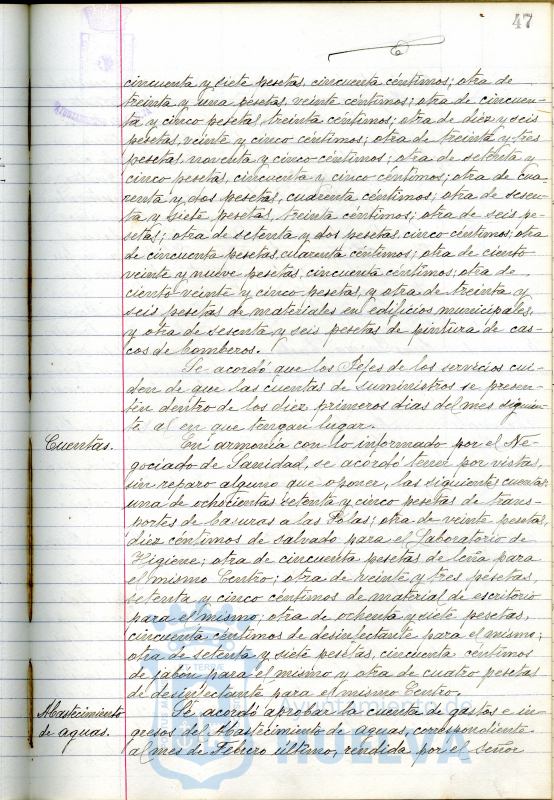 47
cincuenta y siete pesetas, cincuenta céntimos; otra de
treinta y una pesetas, veinte céntimos; otra de cincuen-
ta y cinco pesetas, treinta céntimos; otra de diez y seis
pesetas, veinte y cinco céntimos; otra de treinta y tres
pesetas, noventa y cinco céntimos; otra de setenta y
cinco pesetas, cincuenta y cinco céntimos; otra de cua-
renta y dos pesetas, cuarenta céntimos; otra de sesen-
ta y siete pesetas, treinta céntimos; otra de seis pe-
setas; otra de setenta y dos pesetas cinco céntimos; otra
de cincuenta pesetas, cuarenta céntimos; otra de ciento
veinte y nueve pesetas, cincuenta céntimos; otra de
ciento veinte y cinco pesetas, y otra de treinta y
seis pesetas de materiales en edificios municipales,
y otra de sesenta y seis pesetas de pintura de cas-
cos de bomberos.
Se acordó que los Jefes de los servicios cui-
den de que las cuentas de suministros se presen-
ten dentro de los diez primeros dias del mes siguien-
te al en que tengan lugar.
Cuentas.
En armonía con lo informado por el Ne-
gociado de Sanidad, se acordó tener por vistas,
sin reparo alguno que oponer, las siguientes cuentas:
una de ochocientas setenta y cinco pesetas de trans-
portes de basuras a las Polas; otra de veinte pesetas,
diez céntimos de salvado para el Laboratorio de
Higiene; otra de cincuenta pesetas de leña para
el mismo Centro; otra de veinte y tres pesetas,
setenta y cinco céntimos de material de escritorio
para el mismo; otra de ochenta y siete pesetas,
cincuenta céntimos de desinfectante para el mismo;
otra de setenta y siete pesetas, cincuenta céntimos
de jabón para el mismo y otra de cuatro pesetas
de desinfectante para el mismo Centro.
Abastecimiento
de aguas.
Se acordó aprobar la cuenta de gastos e in-
gresos del Abastecimiento de aguas, correspondiente
al mes de Febrero último, rendida por el Señor
Ayuntamiento de
HUELVA